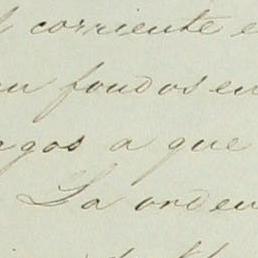 corriente
fondos en
gos a que
La orden